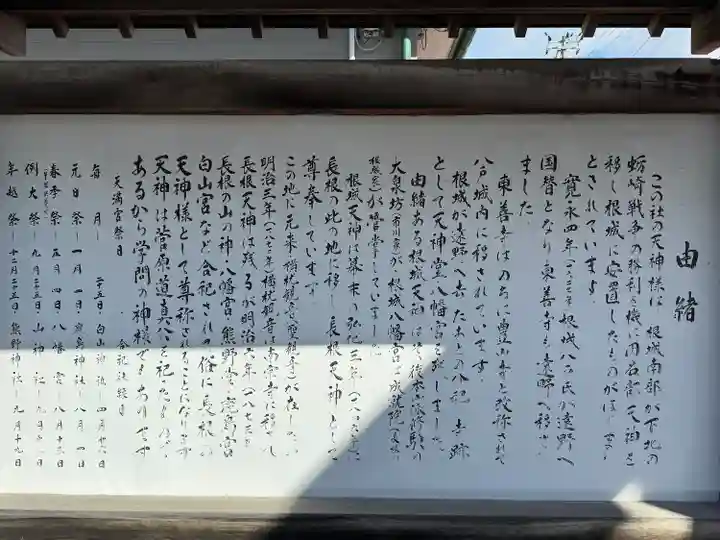 由緒
この社の天神様は、根城南部が下北の
蛎崎戦争の勝利を機に田名部天神を
移し根城に安置したものがはじまり
とされています。
寛永四年(一六二七年)根城八戸氏が遠野へ
国替となり東善寺も遠野へ移さ
ました。
東善寺はのちに豊山寺と改称されて
八戸城内に移されています。
根城が遠野へ去ったあとの八幡 跡
として天神堂八幡宮を残しました。
由緒ある根城天神はその後本 修験の
大泉坊 が、根城八幡宮は成就院
が管掌していました。
根城天神は幕末の弘化三年(一八四六年)に
長根の此の地に移し長根天神として
尊奉しています。
この地に元来 横枕観音 が在したが
明治三年(一八七〇年)横枕観音は南宗寺に移され
長根天神は残るが明治六年(一八七三年)
長根の山の神、八幡宮、熊野堂、鹿島宮
白山宮など合祀され俗に長根の
天神様として尊称されることになります
天神は菅原道真公を祀ったもので
あるから学問の神様でもあります
天満宮祭日 合祀社祭日
毎月一 二十五日 白山神社一四月十八日
元日祭一一月一日 鹿島神社一八月一日
春季祭一五月四日 八幡宮一八月十五日
例大祭一九月二十五日 山神社一九月十二日
年越祭一十二月二十五日 熊野神社一九月十九日